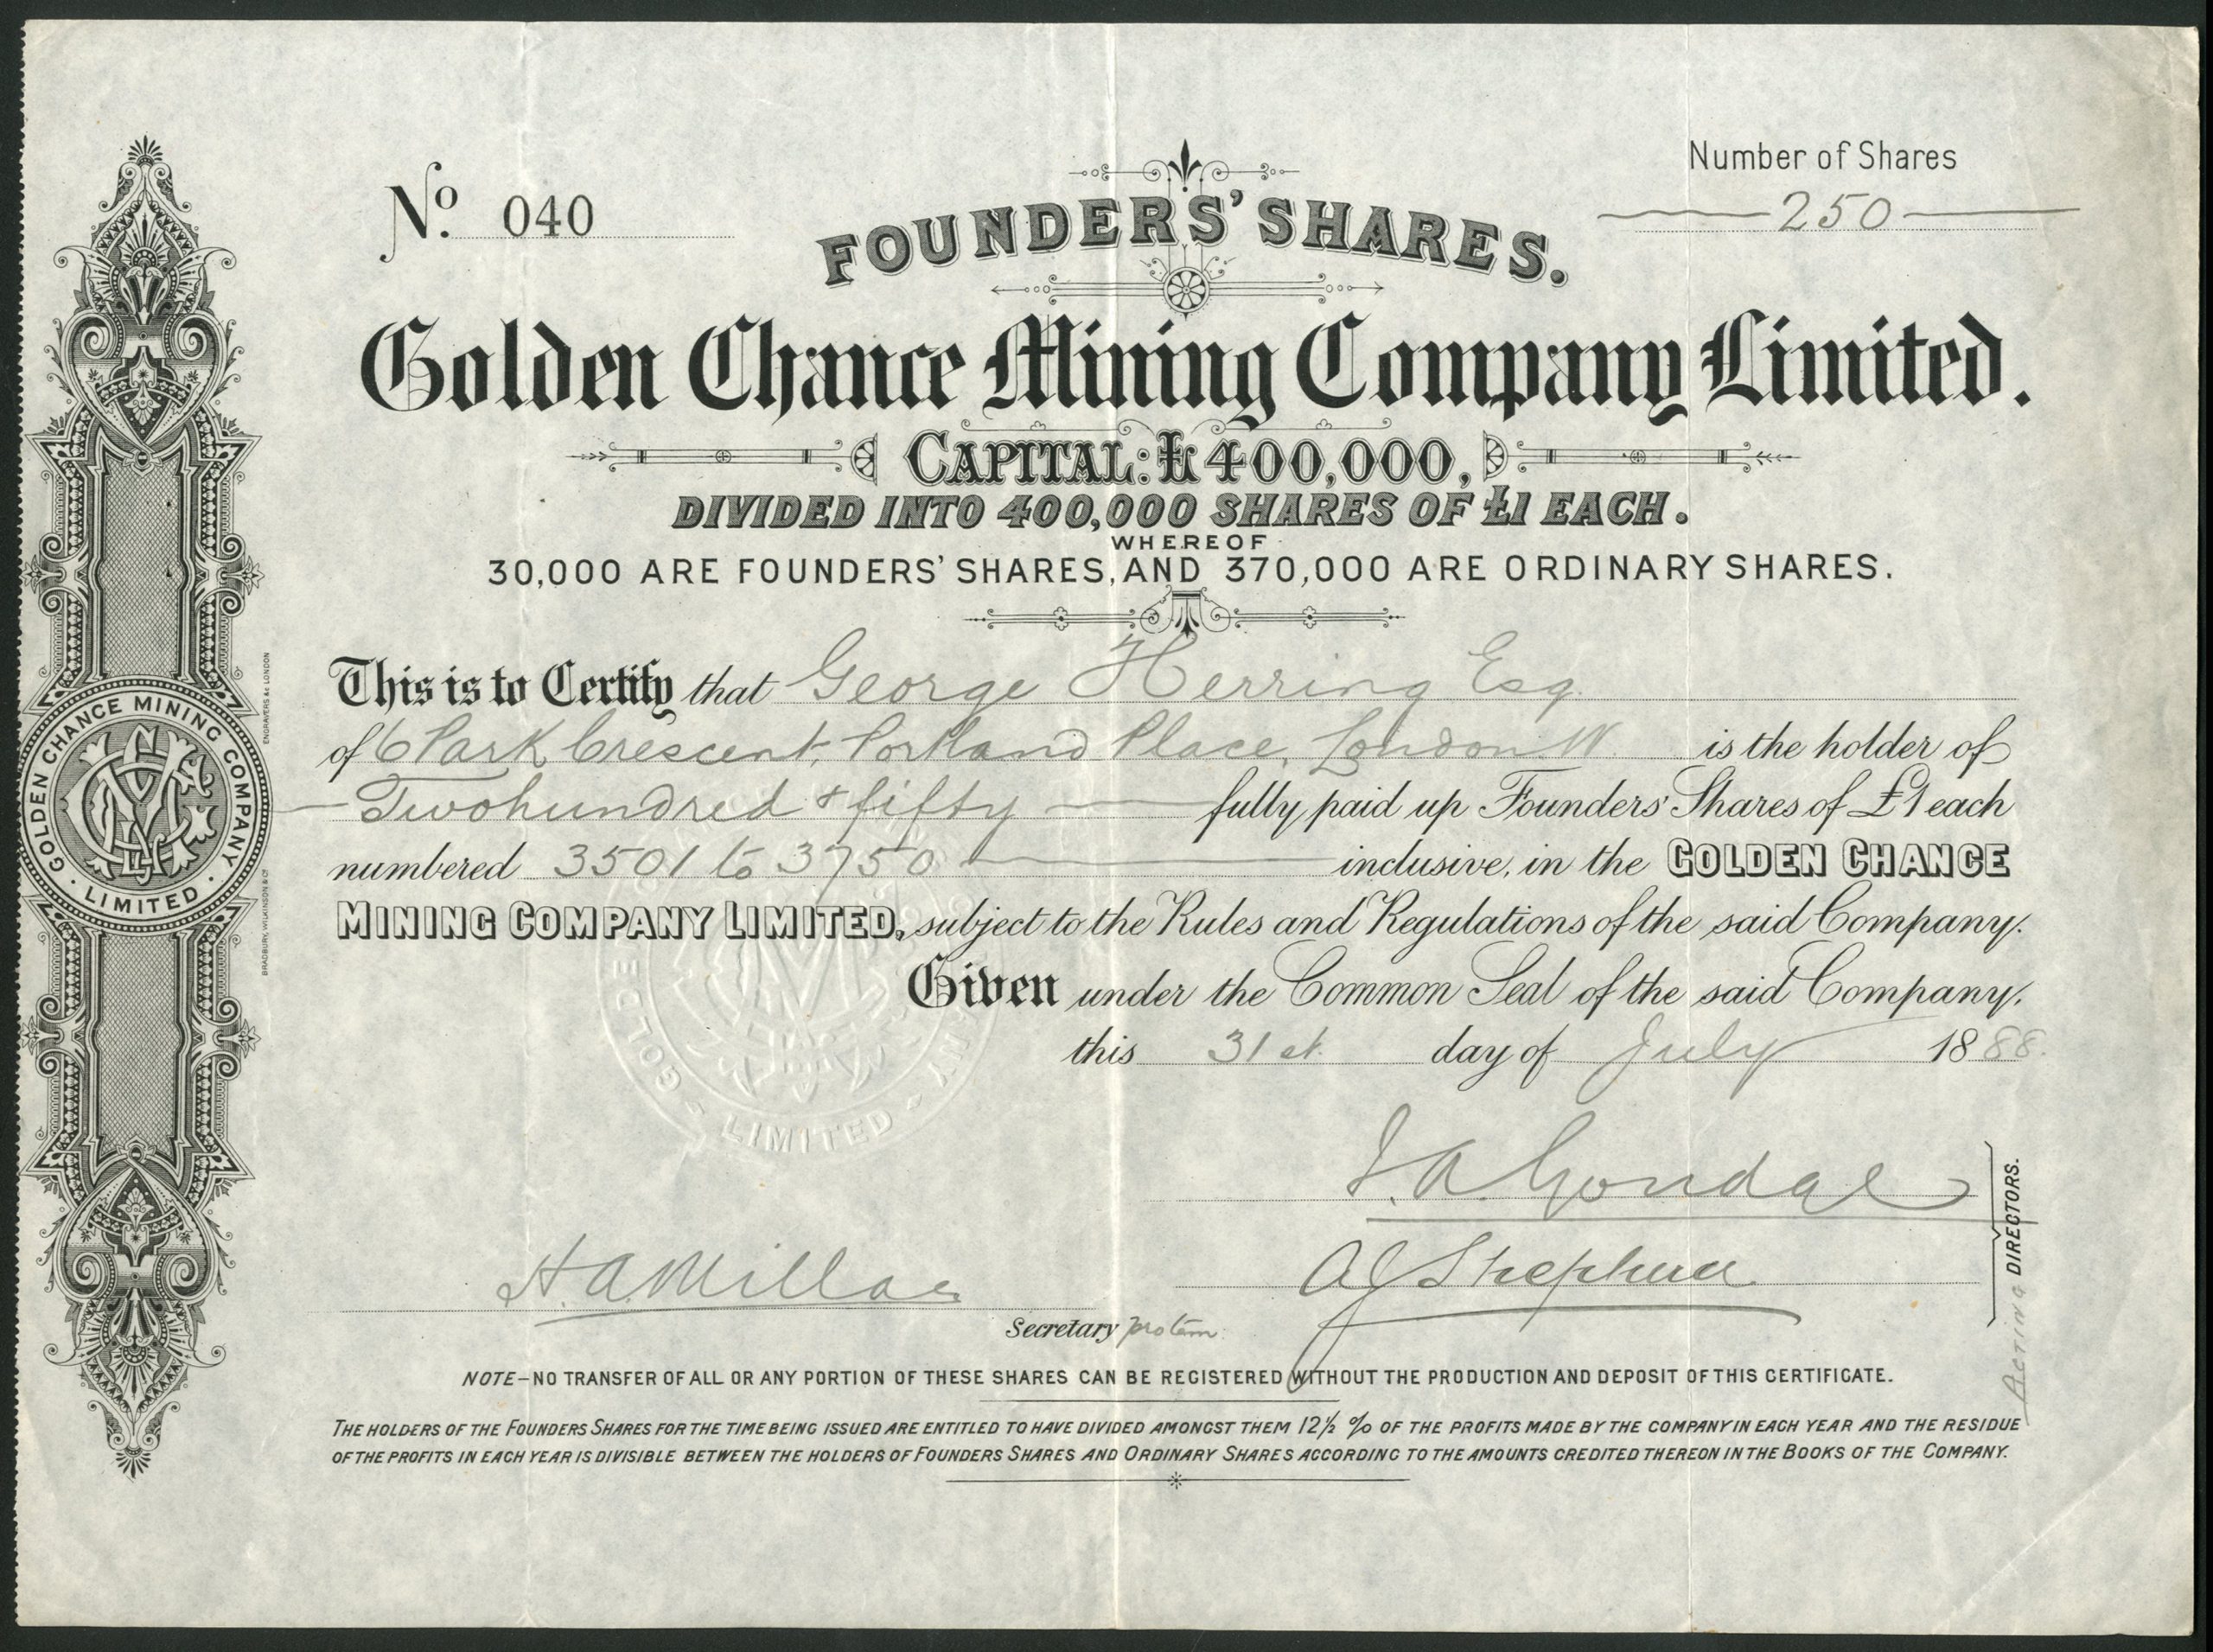 No. 040
Number of Shares
250
FOUNDERS' SHARES.
Golden Chance Mining Company Limited.
CAPITAL: £400,000,
DIVIDED INTO 400,000 SHARES OF £1 EACH.
WHEREOF
30,000 ARE FOUNDERS' SHARES, AND 370,000 ARE ORDINARY SHARES.
This is to Certify that George Herring Esq.
of 6 Park Crescent, Portland Place, London W. is the holder of
Twohundred & fifty fully paid up Founders' Shares of £1 each
numbered 3501 to 3750 inclusive, in the GOLDEN CHANCE
MINING COMPANY LIMITED, subject to the Rules and Regulations of the said Company.
Given under the Common Seal of the said Company,
this 31st day of July 1888.
GOLDEN CHANCE MINING COMPANY
· LIMITED ·
ENGRAVERS &c LONDON
BRADBURY, WILKINSON & Co
GOLDE
- LIMITED -
J. A.
A J
DIRECTORS.
Acting
H. A. Millar
Secretary pro tem:
NOTE—NO TRANSFER OF ALL OR ANY PORTION OF THESE SHARES CAN BE REGISTERED WITHOUT THE PRODUCTION AND DEPOSIT OF THIS CERTIFICATE.
THE HOLDERS OF THE FOUNDERS SHARES FOR THE TIME BEING ISSUED ARE ENTITLED TO HAVE DIVIDED AMONGST THEM 12½ % OF THE PROFITS MADE BY THE COMPANY IN EACH YEAR AND THE RESIDUE
OF THE PROFITS IN EACH YEAR IS DIVISIBLE BETWEEN THE HOLDERS OF FOUNDERS SHARES AND ORDINARY SHARES ACCORDING TO THE AMOUNTS CREDITED THEREON IN THE BOOKS OF THE COMPANY.